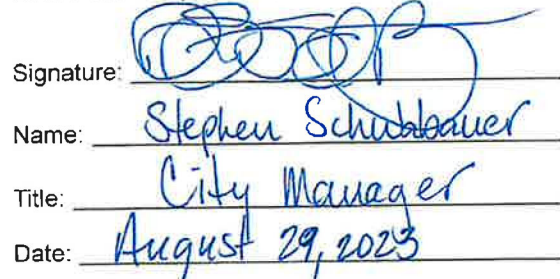 Signature:
Name: Stephen Schubbauer
Title: City Manager
Date: August 29, 2023